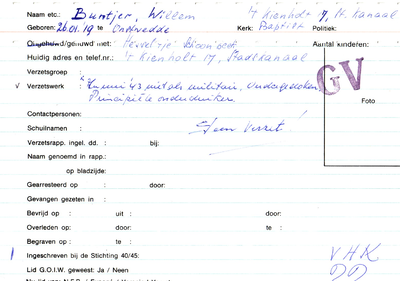 Naam etc.: Buntjer, Willem 't Kienholt 17, St. Kanaal
Geboren: 26.01.19 te: Onstwedde Kerk: Baptist Politiek:
Ongehuwd/gehuwd met: Aantal kinderen:
Huidig adres en telef.nr.: 't Kienholt 17, Stadskanaal
GV
Verzetsgroep :
Verzetswerk : "In mei '43 niet als militair. Ondergedoken.
Principiële onderduiker. Foto
Contactpersonen:
Schuilnaam : Geen verzet!
Verzetsrapp. ingel. dd. : bij:
Naam genoemd in rapp.:
op bladzijde:
Gearresteerd op : door:
Gevangen gezeten in :
Bevrijd op : uit : door:
Overleden op: door: te :
Begraven op : te :
Ingeschreven bij de Stichting 40/45: VHK
Lid G.O.I.W. geweest: Ja / Neen DD